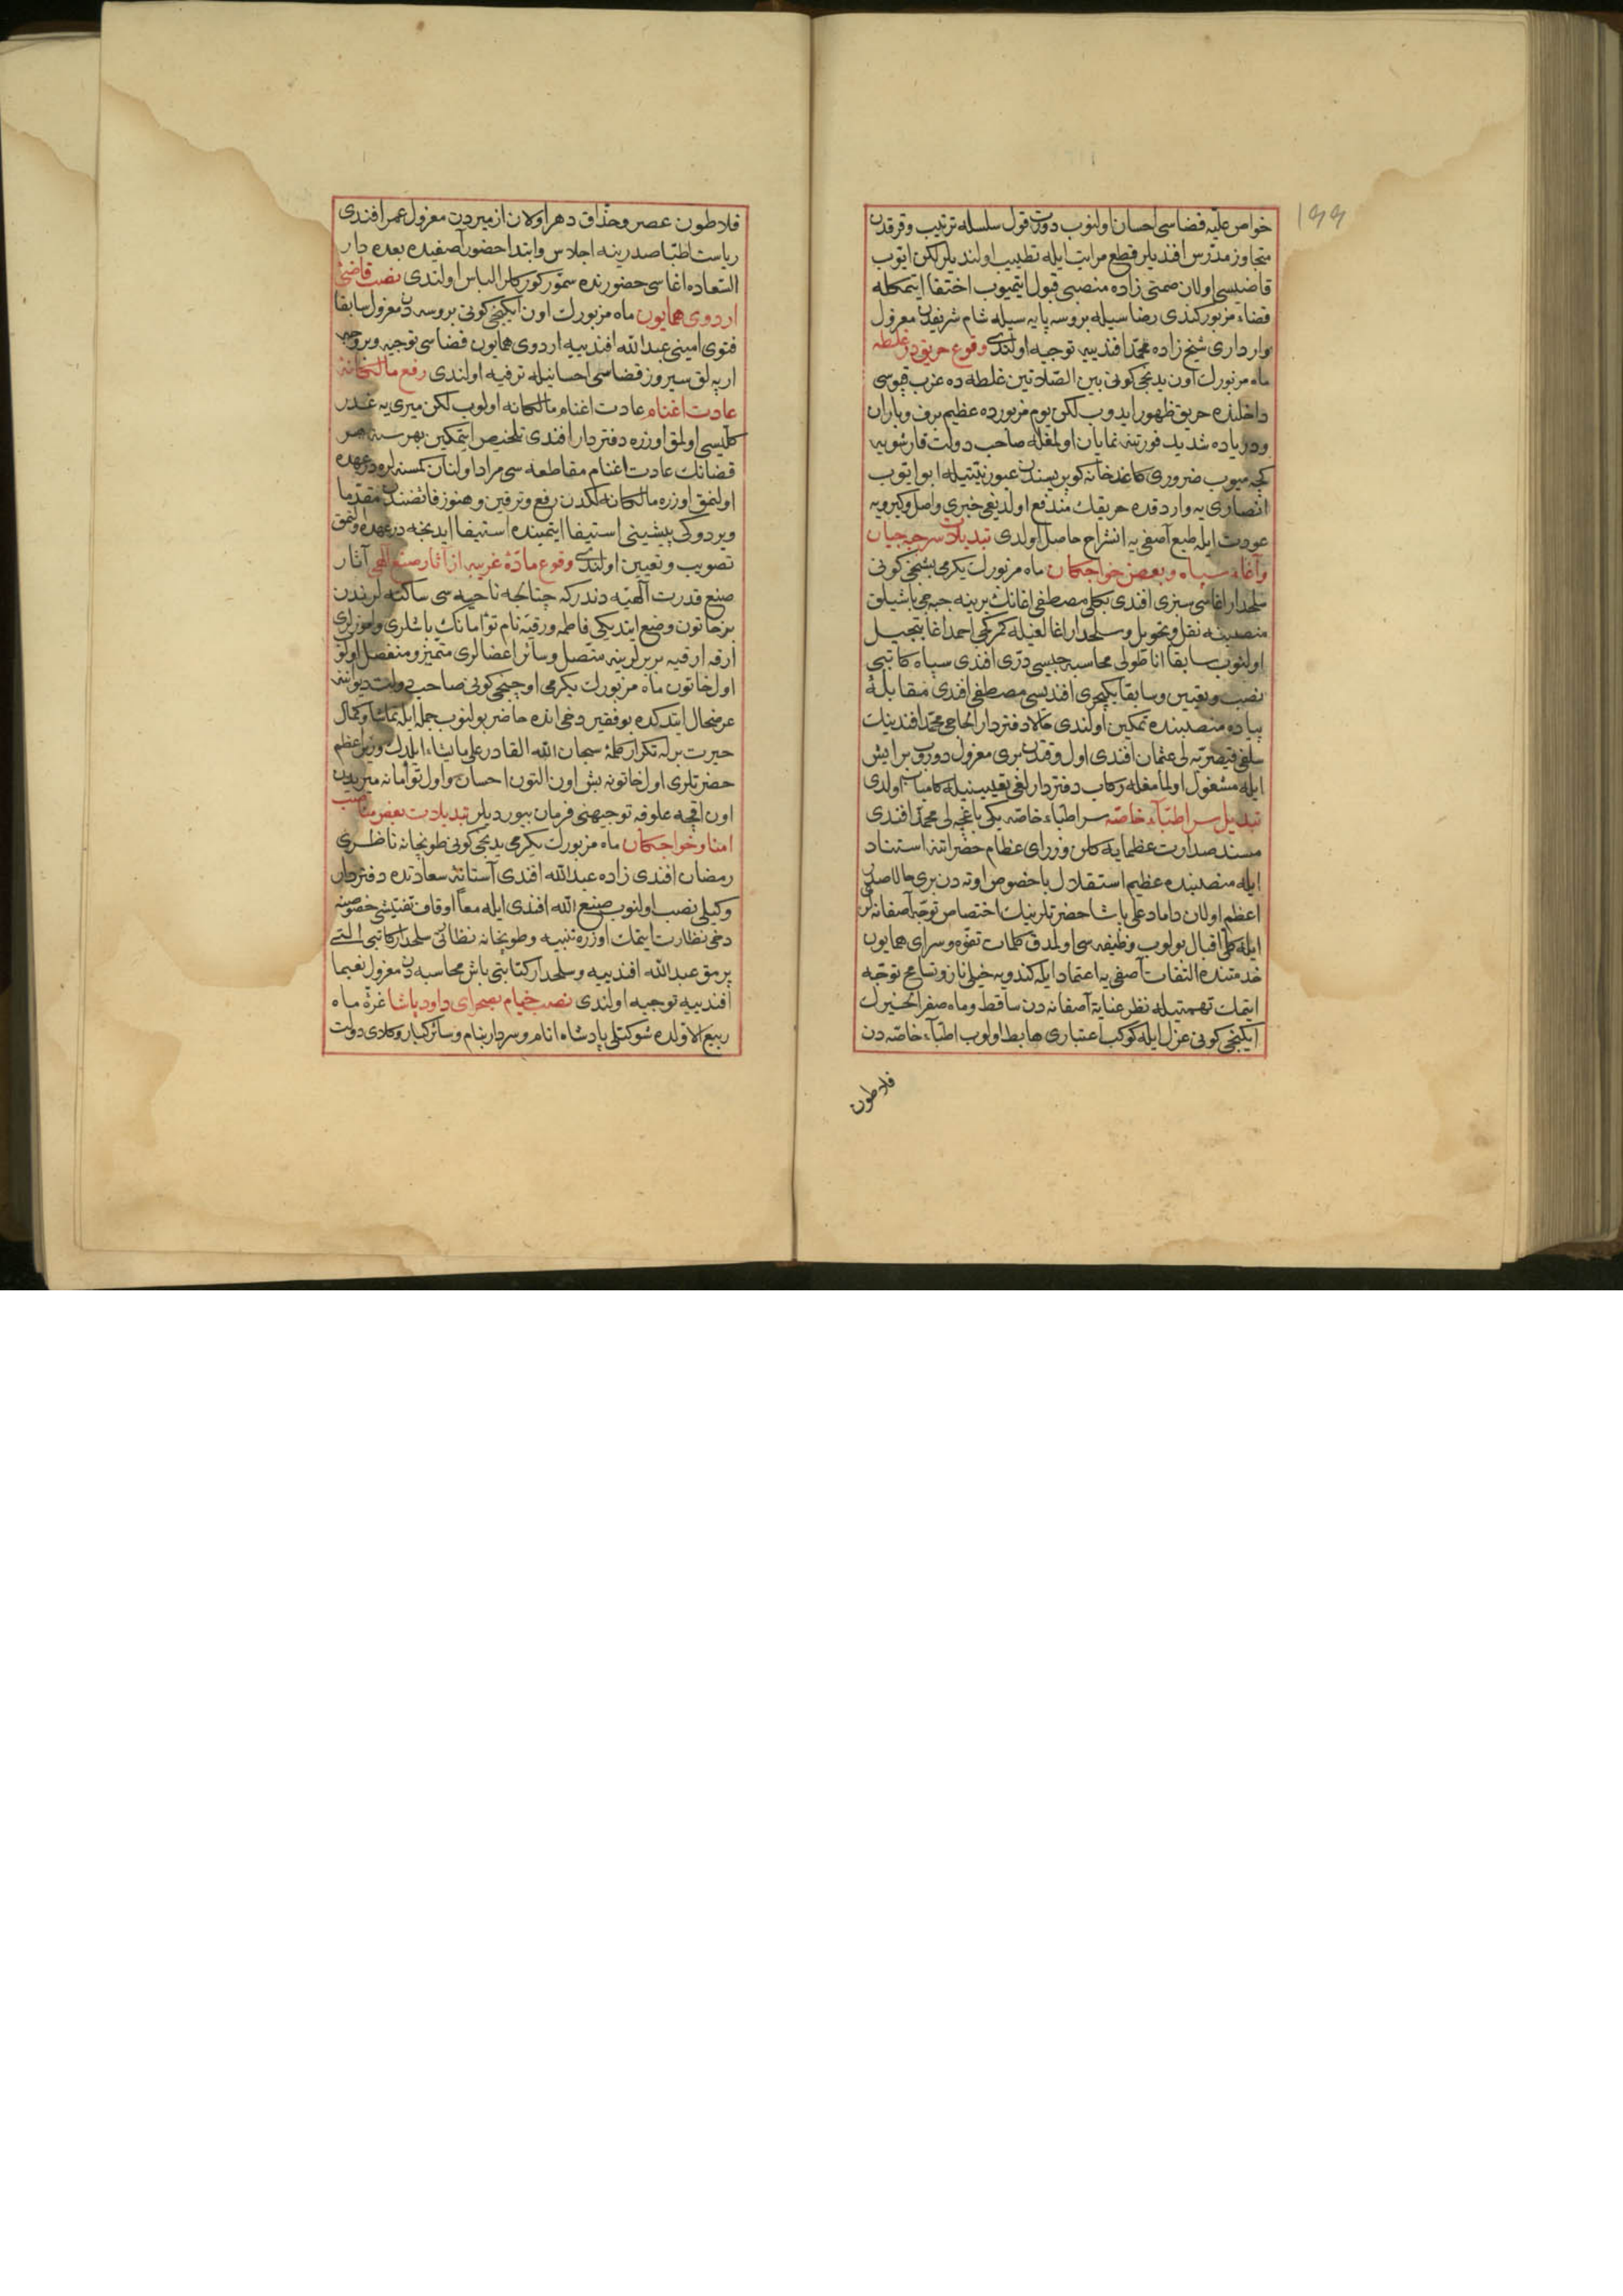 ۱۹۹
خواص علیه قضاسی احسان اولنوب دورت قول سلسله ترتیب و قرقدن
متجاوز مدرس افندیلر قطع مراتب ایله تطییب اولندیلر لکن ایوب
قاضیسی اولان صمتی زاده منصبی قبول ایتمیوب اختفا ایتمکله
قضاء مزبور کندی رضاسیله بروسه پایه سیله شام شریفدن معزول
وارداری شیخ زاده محمد افندییه توجیه اولندی وقوع حریق در غلطه
ماه مزبورک اون یدنجی کونی بین الصلاتین غلطه ده عزب قپوسی
داخلنده حریق ظهور ایدوب لکن یوم مزبورده عظیم برف و باران
و دریاده شدید فورتنه نمایان اولمغله صاحب دولت قارشویه
کچه میوب ضروری کاغدخانه کوپریسندن عبور نیتیله ابو ایوب
انصاری یه وارد قده حریقک مندفع اولدیغی خبری واصل و کیرویه
عودت ایله طبع آصفی یه انشراح حاصل اولدی تبدیلات سرجبه جیان
و آغاء سپاه و بعض خواجکان ماه مزبورک یکرمی بشنجی کونی
سلحدار اغاسی سبزی افندی بکلی مصطفی اغانک یرینه جبه جی باشیلق
منصبنه نقل و تحویل و سلحدار اغالغیله کمرکجی احمد اغا تبجیل
اولنوب سابقا اناطولی محاسبه جیسی دری افندی سپاه کاتبی
نصب و تعیین و سابقا یکیچری افندیسی مصطفی افندی مقابلهٔ
پیاده منصبنده تمکین اولندی حالا دفتردار الحاجی محمد افندینک
سلفی قیصریه لی عثمان افندی اول وقتدن بری معزول دوروب بر ایش
ایله مشغول اولمامغله رکاب دفتردارلغی تعیینیله کامیاب اولدی
تبدیل سر اطباء خاصه سر اطباء خاصه یکی باغچه لی محمد افندی
مسند صدارت عظمایه کلن وزرای عظام حضراتنه استناد
ایله منصبنده عظیم استقلال باخصوص اوته دن بری حالا صدر
اعظم اولان داماد علی پاشا حضرتلرینک اختصاص توجه آصفانه لری
ایله کلی اقبال بولوب وظیفه سی اولمدق کلمات تفوه و سرای همایون
خدمتنده التفات آصفی یه اعتماد ایله کندویه خیلی ناز و تسامح توجه
ایتمک تهمتیله نظر عنایة آصفانه دن ساقط و ماه صفر الخیرک
ایکنجی کونی عزل ایله کوکب اعتباری هابط اولوب اطباء خاصه دن
فلاطون
فلاطون عصر و حذاق دهر اولان ازمیردن معزول عمر افندی
ریاست اطبا صدرینه اجلاس و ابتدا حضور آصفیده بعده دار
السعاده اغاسی حضورنده سمور کورکلر الباس اولندی نصب قاضئ
اردوی همایون ماه مزبورک اون ایکنجی کونی بروسه دن معزول سابقا
فتوی امینی عبدالله افندییه اردوی همایون قضاسی توجیه و بر وجه
ارپه لق سیروز قضاسی احسانیله ترفیه اولندی رفع مالکانهٔ
عادت اغنام عادت اغنام مالکانه اولوب لکن میری یه غدر
کلیسی اولمق اوزره دفتردار افندی تلخیص ایتمکین بهر سنه هر
قضانک عادت اغنام مقاطعه سی مراد اولنان کمسنه لره در عهده
اولنمق اوزره مالکانه لکدن رفع و ترقین و هنوز فائضندن مقدما
ویردوکی پیشینی استیفا ایتمینده استیفا ایدنجه در عهده اولنمق
تصویب و تعیین اولندی وقوع مادهٔ غریبه از آثار صنع الهی آثار
صنع قدرت الهیه دندر که چتالجه ناحیه سی ساکنه لرندن
بر خاتون وضع ایتدیکی فاطمه و رقیه نام توأمانک باشلری و اموزلری
ارقه ارقیه بربرلرینه متصل و سائر اعضالری متمیز و منفصل اولوب
اول خاتون ماه مزبورک یکرمی اوچنجی کونی صاحب دولت دیواننه
عرضحال ایتدکده بو فقیر دخی انده حاضر بولنوب جمله ایله تماشا و کمال
حیرت برله تکرار کلمهٔ سبحان الله القادر علی ما یشاء ایلدک وزیر اعظم
حضرتلری اول خاتونه بش اون التون احسان و اول توأمانه میریدن
اون اقچه علوفه توجیهنی فرمان بیوردیلر تبدیلات بعض مناصب
امنا و خواجکان ماه مزبورک یکرمی یدنجی کونی طوپخانه ناظری
رمضان افندی زاده عبدالله افندی آستانهٔ سعادتده دفتردار
وکیلی نصب اولنوب صنع الله افندی ایله معا اوقاف تفتیشی خصوصنه
دخی نظارت ایتمک اوزره تنبیه و طوپخانه نظارتی سلحدار کاتبی التی
پرمق عبدالله افندییه و سلحدار کتابتی باش محاسبه دن معزول نعیما
افندییه توجیه اولندی نصب خیام بصحرای داود پاشا غرهٔ ماه
ربیع الاولده شوکتلی پادشاه انام و سردار بنام و سائر کبار وکلای دولت